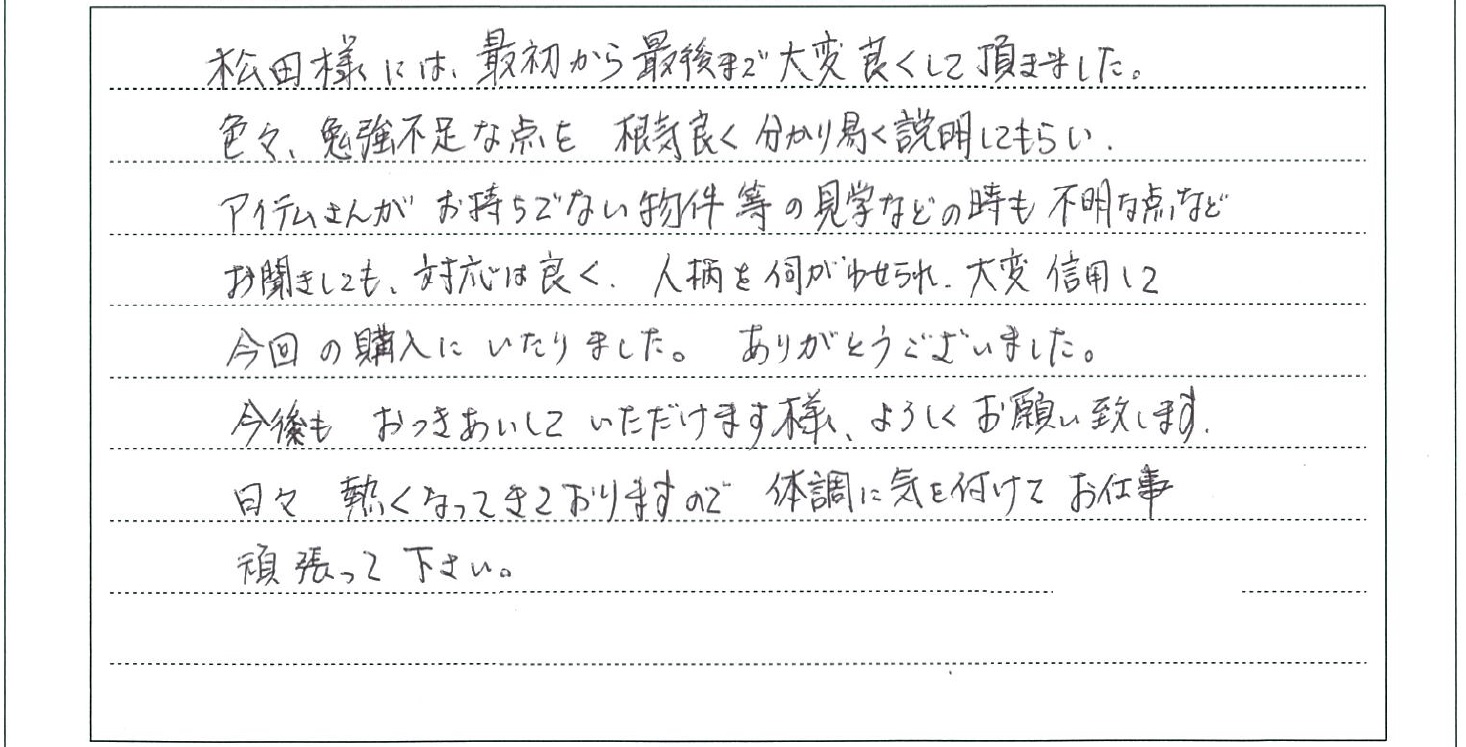 松田様には、最初から最後まで大変良くして頂きました。
色々、勉強不足な点を 根気良く分かり易く説明してもらい、
アイテムさんが お持ちでない物件等の見学などの時も不明な点など
お聞きしても、対応は良く、人柄を伺がわせられ、大変信用して
今回の購入に いたりました。 ありがとうございました。
今後も おつきあいして いただけます様、よろしくお願い致します。
日々 熱くなってきておりますので 体調に気を付けて お仕事
頑張って下さい。